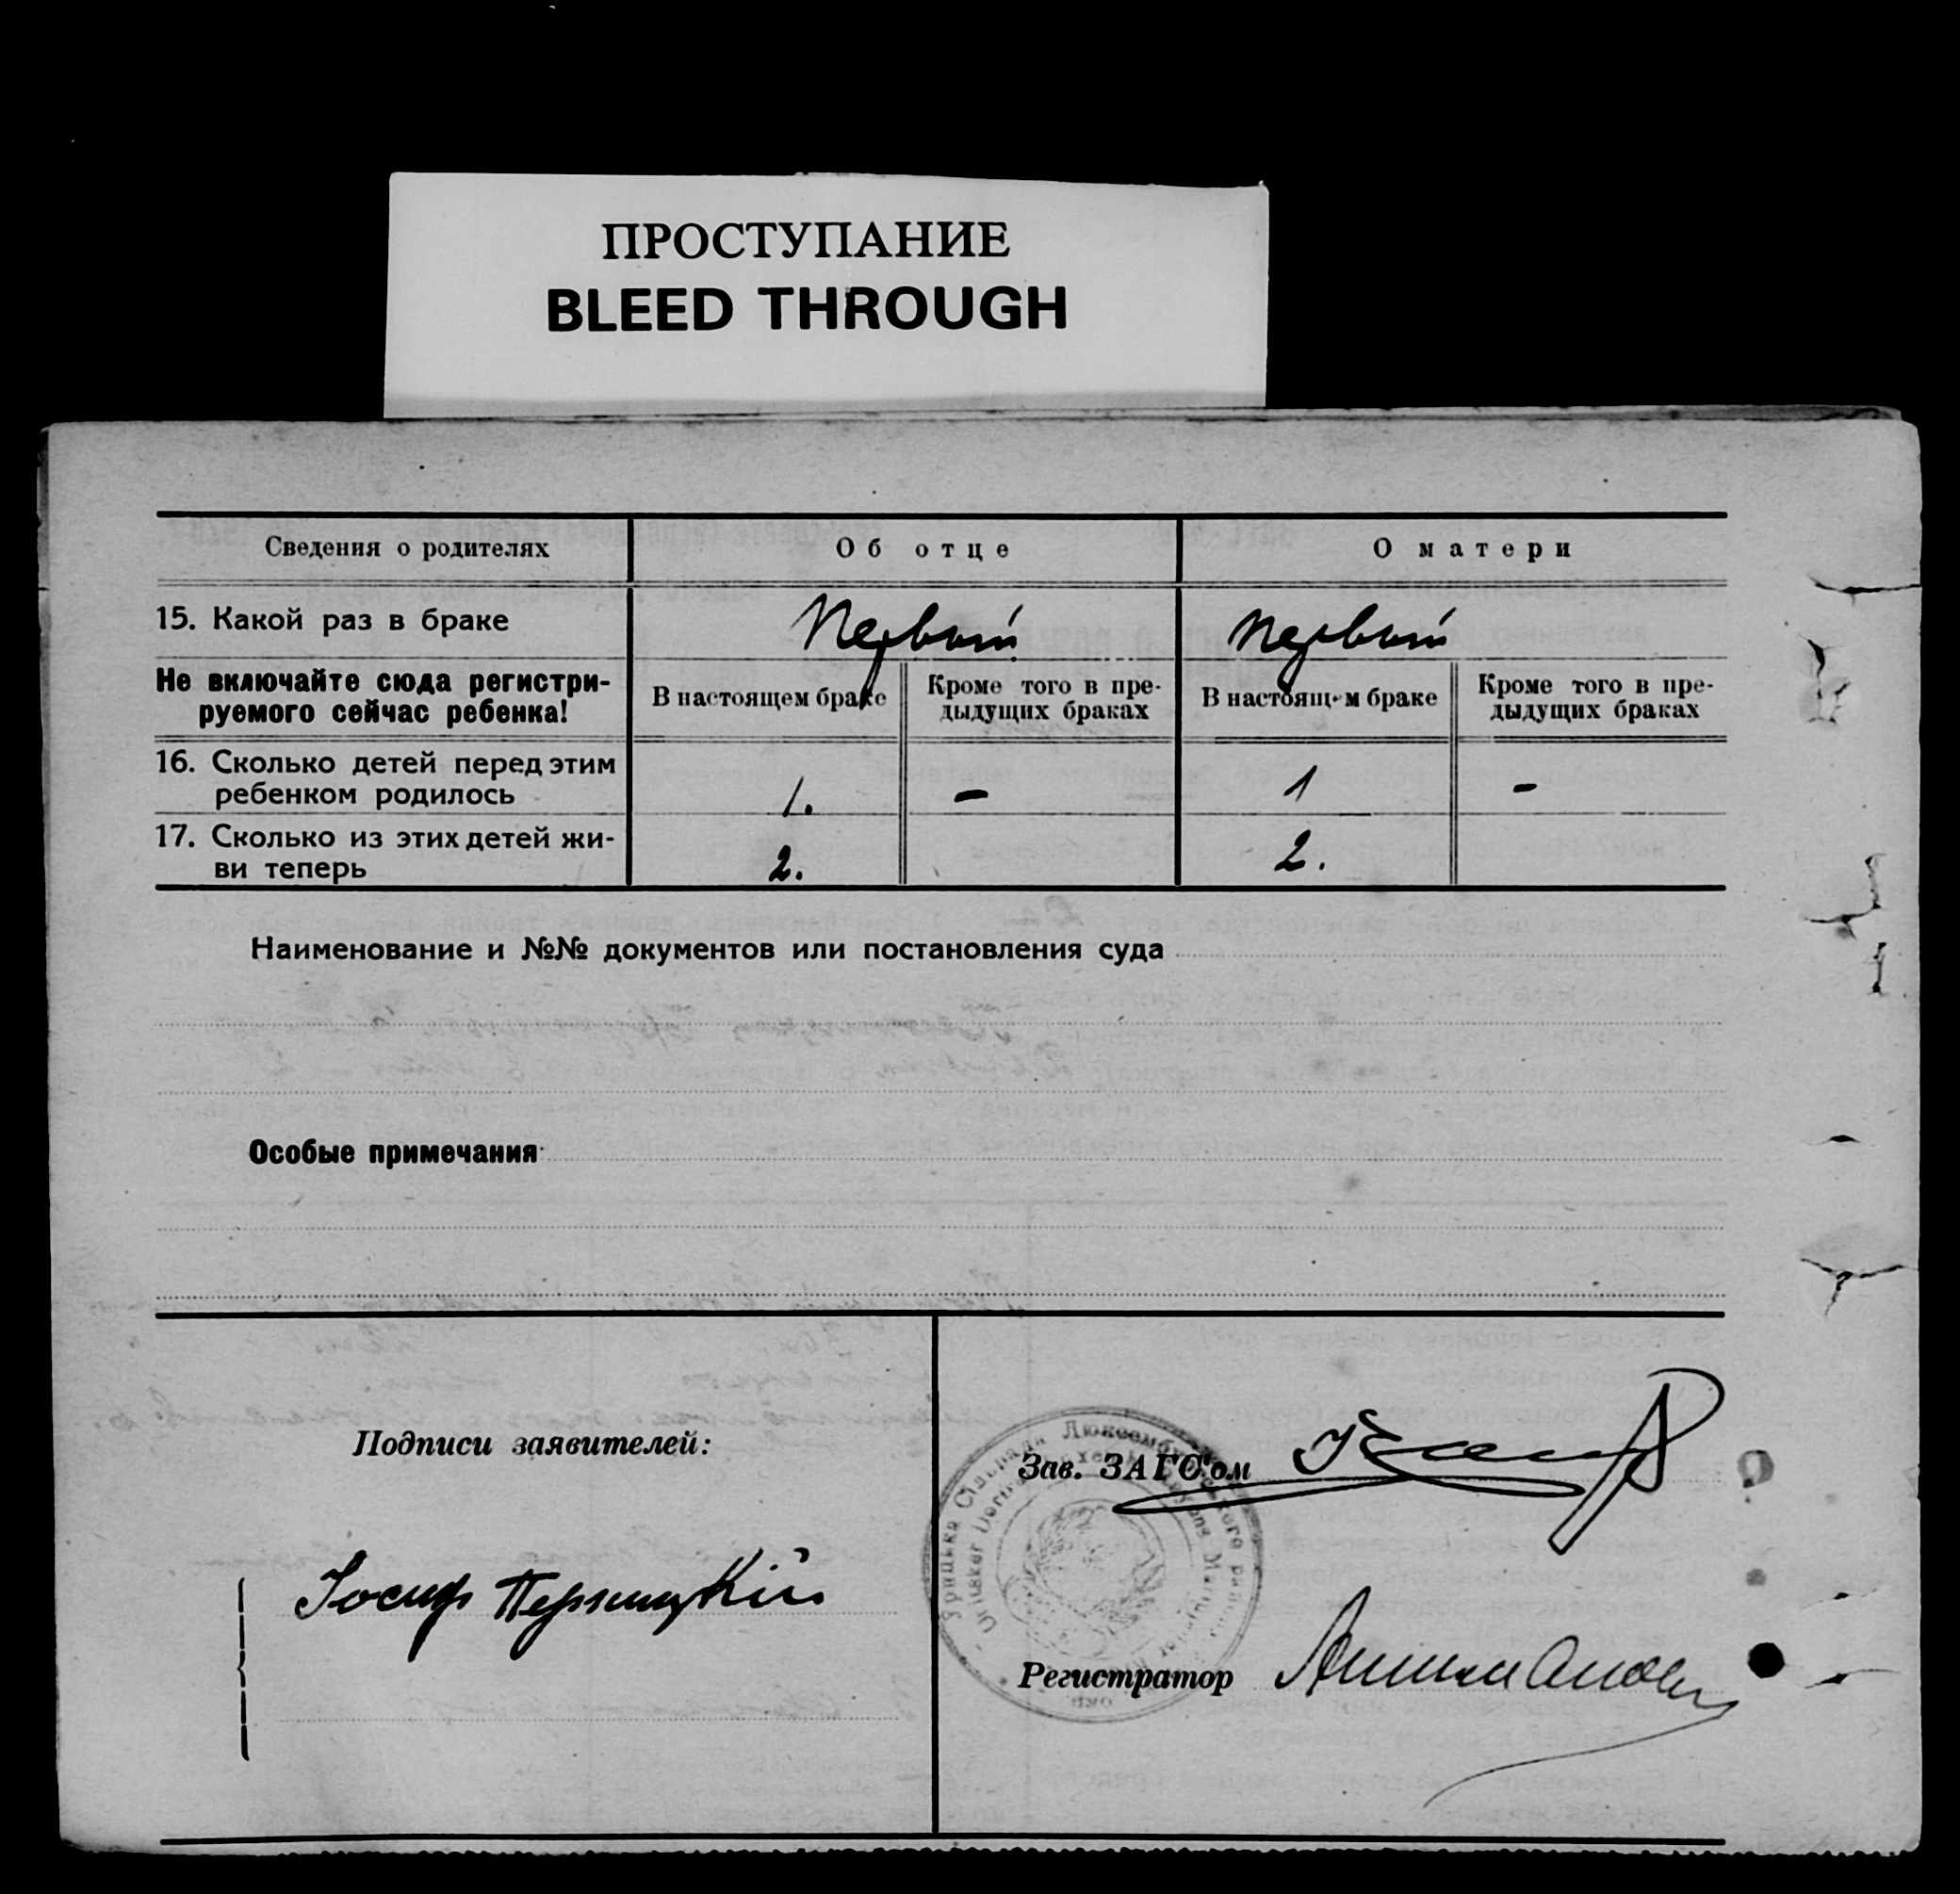 ПРОСТУПАНИЕ
BLEED THROUGH
Сведения о родителях
Об отце
О матери
15. Какой раз в браке
Первый
первый
Не включайте сюда регистри-
руемого сейчас ребенка!
В настоящем браке
Кроме того в пре-
дыдущих браках
В настоящем браке
Кроме того в пре-
дыдущих браках
16. Сколько детей перед этим
ребенком родилось
1.
-
1
-
17. Сколько из этих детей жи-
ви теперь
2.
2.
Наименование и №№ документов или постановления суда
Особые примечания
Подписи заявителей:
Зав. ЗАГС'ом
Іосиф
Регистратор